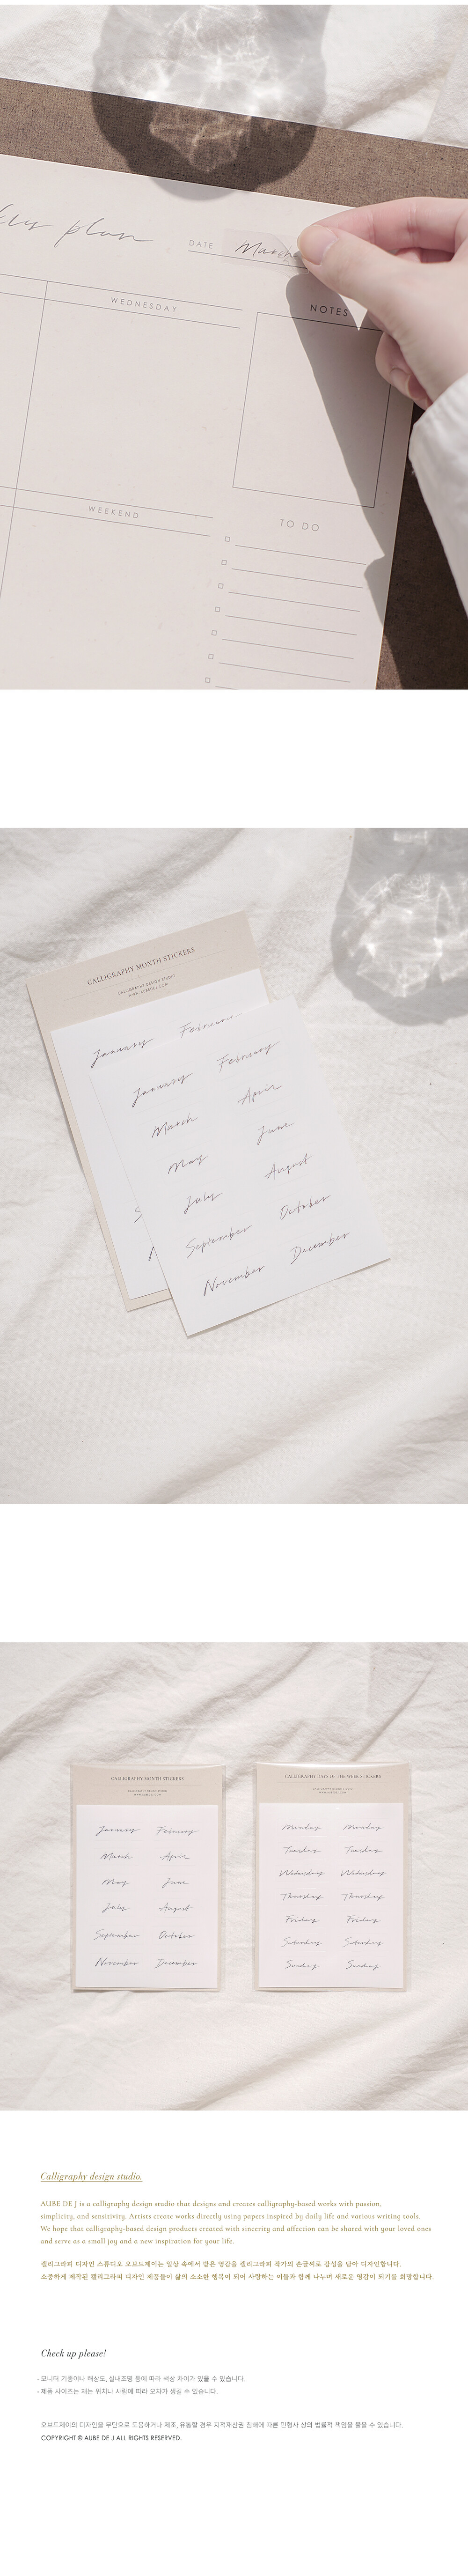 kly plan
DATE
March
WEDNESDAY
NOTES
WEEKEND
TO DO
CALLIGRAPHY MONTH STICKERS
CALLIGRAPHY DESIGN STUDIO
WWW.AUBEDEJ.COM
January February
January February
March April
May June
July August
September October
November December
CALLIGRAPHY MONTH STICKERS
CALLIGRAPHY DESIGN STUDIO
WWW.AUBEDEJ.COM
January February
March April
May June
July August
September October
November December
CALLIGRAPHY DAYS OF THE WEEK STICKERS
CALLIGRAPHY DESIGN STUDIO
WWW.AUBEDEJ.COM
Monday Monday
Tuesday Tuesday
Wednesday Wednesday
Thursday Thursday
Friday Friday
Saturday Saturday
Sunday Sunday
Calligraphy design studio.
AUBE DE J is a calligraphy design studio that designs and creates calligraphy-based works with passion,
simplicity, and sensitivity. Artists create works directly using papers inspired by daily life and various writing tools.
We hope that calligraphy-based design products created with sincerity and affection can be shared with your loved ones
and serve as a small joy and a new inspiration for your life.
캘리그라피 디자인 스튜디오 오브드제이는 일상 속에서 받은 영감을 캘리그라피 작가의 손글씨로 감성을 담아 디자인합니다.
소중하게 제작된 캘리그라피 디자인 제품들이 삶의 소소한 행복이 되어 사랑하는 이들과 함께 나누며 새로운 영감이 되기를 희망합니다.
Check up please!
- 모니터 기종이나 해상도, 실내조명 등에 따라 색상 차이가 있을 수 있습니다.
- 제품 사이즈는 재는 위치나 상황에 따라 오차가 생길 수 있습니다.
오브드제이의 디자인을 무단으로 도용하거나 제조, 유통할 경우 지적재산권 침해에 따른 민형사 상의 법률적 책임을 물을 수 있습니다.
COPYRIGHT © AUBE DE J ALL RIGHTS RESERVED.